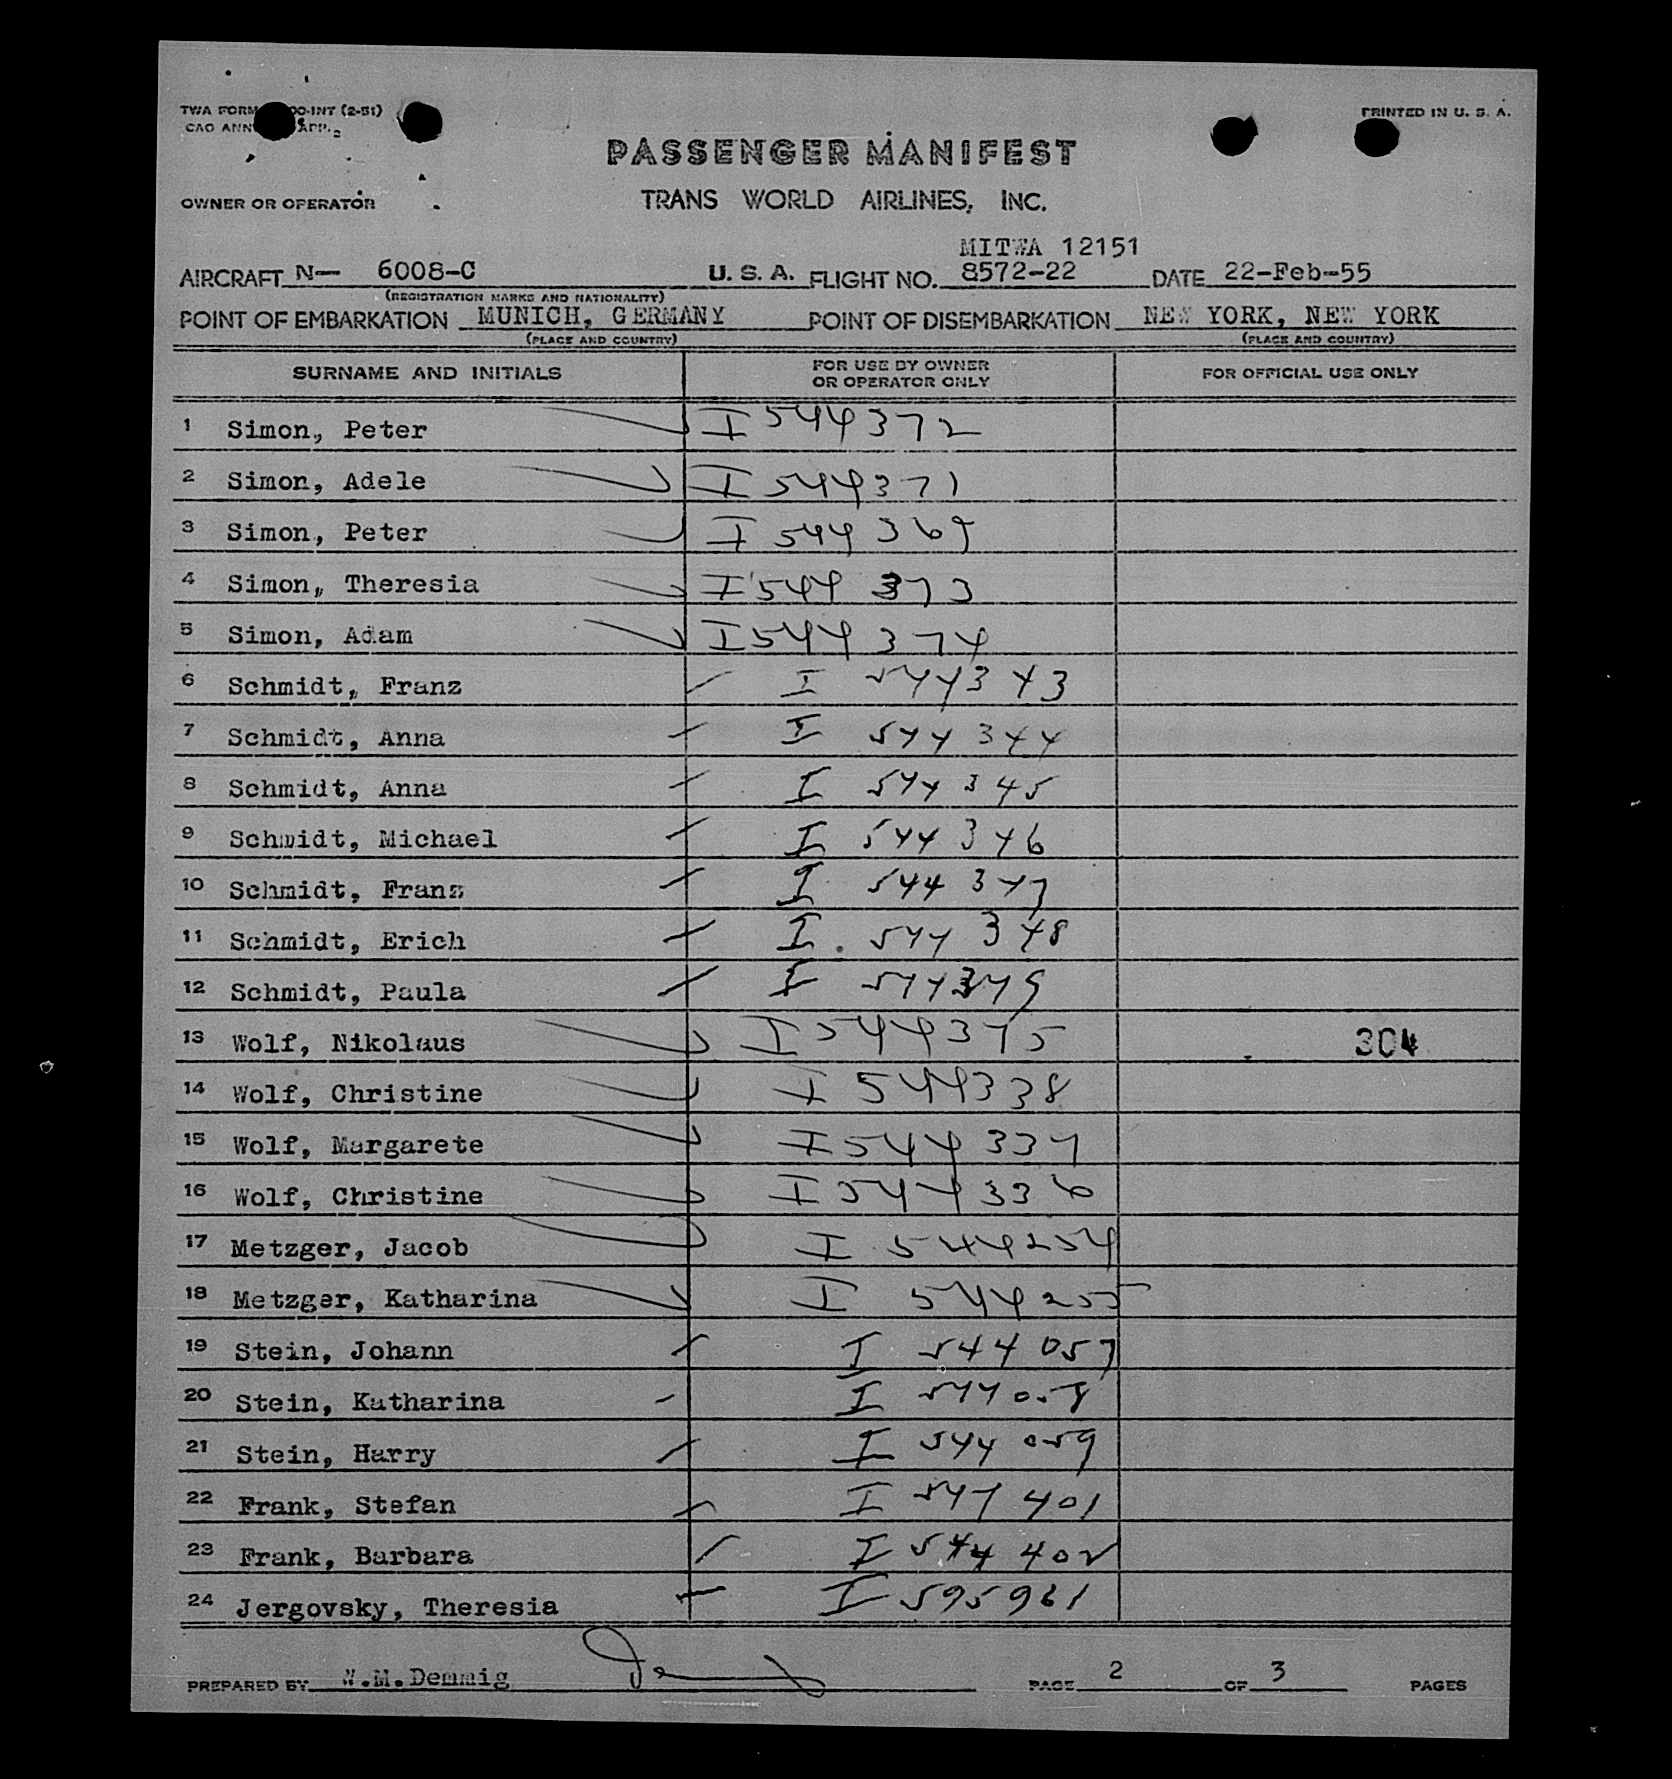 TWA FORM OO-INT (2-51)
PRINTED IN U. S. A.
CAO ANN APP. 2
PASSENGER MANIFEST
OWNER OR OPERATOR
TRANS WORLD AIRLINES, INC.
MITWA 12151
AIRCRAFT N— 6008-C U. S. A. FLIGHT NO. 8572-22 DATE 22-Feb-55
(REGISTRATION MARKS AND NATIONALITY)
POINT OF EMBARKATION MUNICH, GERMANY POINT OF DISEMBARKATION NEW YORK, NEW YORK
(PLACE AND COUNTRY) (PLACE AND COUNTRY)
SURNAME AND INITIALS FOR USE BY OWNER OR OPERATOR ONLY FOR OFFICIAL USE ONLY
1 Simon, Peter I 544372
2 Simon, Adele I 544371
3 Simon, Peter I 544369
4 Simon, Theresia I 544373
5 Simon, Adam I 544374
6 Schmidt, Franz I 544343
7 Schmidt, Anna I 544344
8 Schmidt, Anna I 544345
9 Schmidt, Michael I 544346
10 Schmidt, Franz I 544347
11 Schmidt, Erich I. 544348
12 Schmidt, Paula I 544349
13 Wolf, Nikolaus I 544375 304
14 Wolf, Christine I 544338
15 Wolf, Margarete I 544337
16 Wolf, Christine I 544336
17 Metzger, Jacob I 544254
18 Metzger, Katharina I 544255
19 Stein, Johann I 544057
20 Stein, Katharina I 544058
21 Stein, Harry I 544059
22 Frank, Stefan I 544401
23 Frank, Barbara I 544402
24 Jergovsky, Theresia I 595961
PREPARED BY W.M.Demmig PAGE 2 OF 3 PAGES